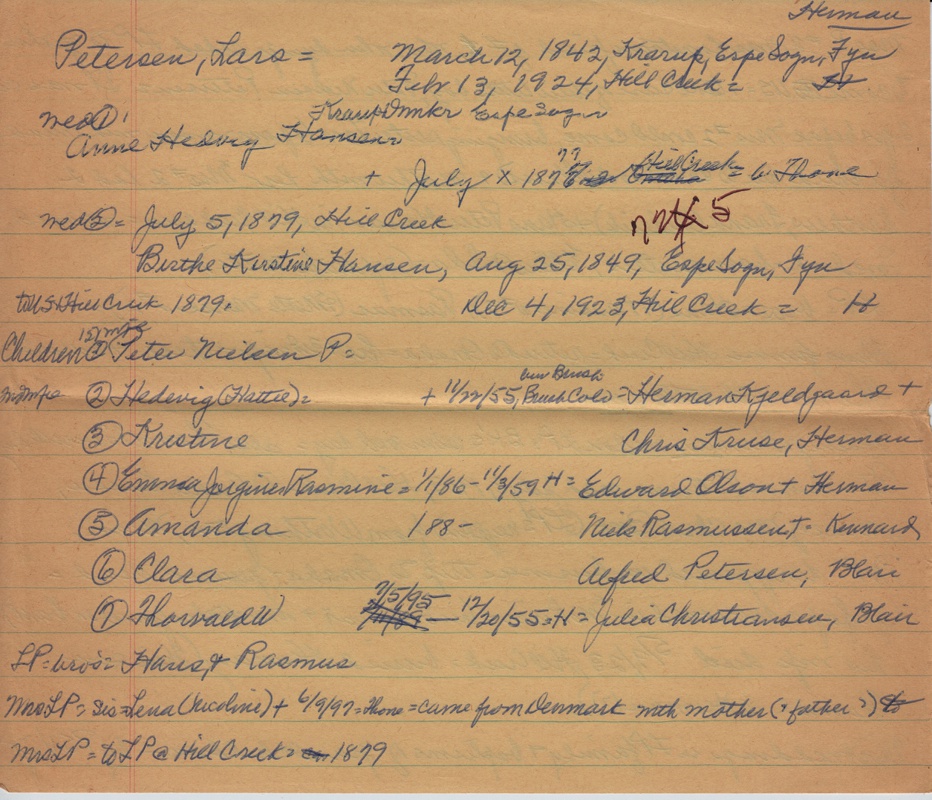 Herman
Petersen, Lars = March 12, 1842, Krarup, Espe Sogn, Fyn
Feb 13, 1924, Hill Creek = H
wed ① Krarup Dmkr Espe Sogn
Anne Hedvig Hansen =
+ July X 1878 79 Omaha Hill Creek = b Thone
wed ② = July 5, 1879, Hill Creek
5
Birthe Kirstine Hansen, Aug 25, 1849, Espe Sogn, Fyn
to US Hill Creek 1879. Dec 4, 1923, Hill Creek = H
Children ① Peter Nielsen P =
② Hedevig (Hattie) = + 11/22/55, Brush Colo = Herman Kjeldgaard +
③ Kristine Chris Kruse, Herman
④ Emma Jorgine Rasmine = 1/1/86 - 11/3/59 H = Edward Olson + Herman
⑤ Amanda 188- Niels Rasmussen + - Kennard
⑥ Clara Alfred Petersen, Blair
⑦ Thorvald W 7/5/95 — 12/20/55 = H = Julia Christiansen, Blair
LP = bros = Hans, + Rasmus
Mrs LP = sis = Lena (Nicoline) + 6/9/97 = Thone = came from Denmark with mother (? father ?) to
Mrs LP = to LP @ Hill Creek = 1879